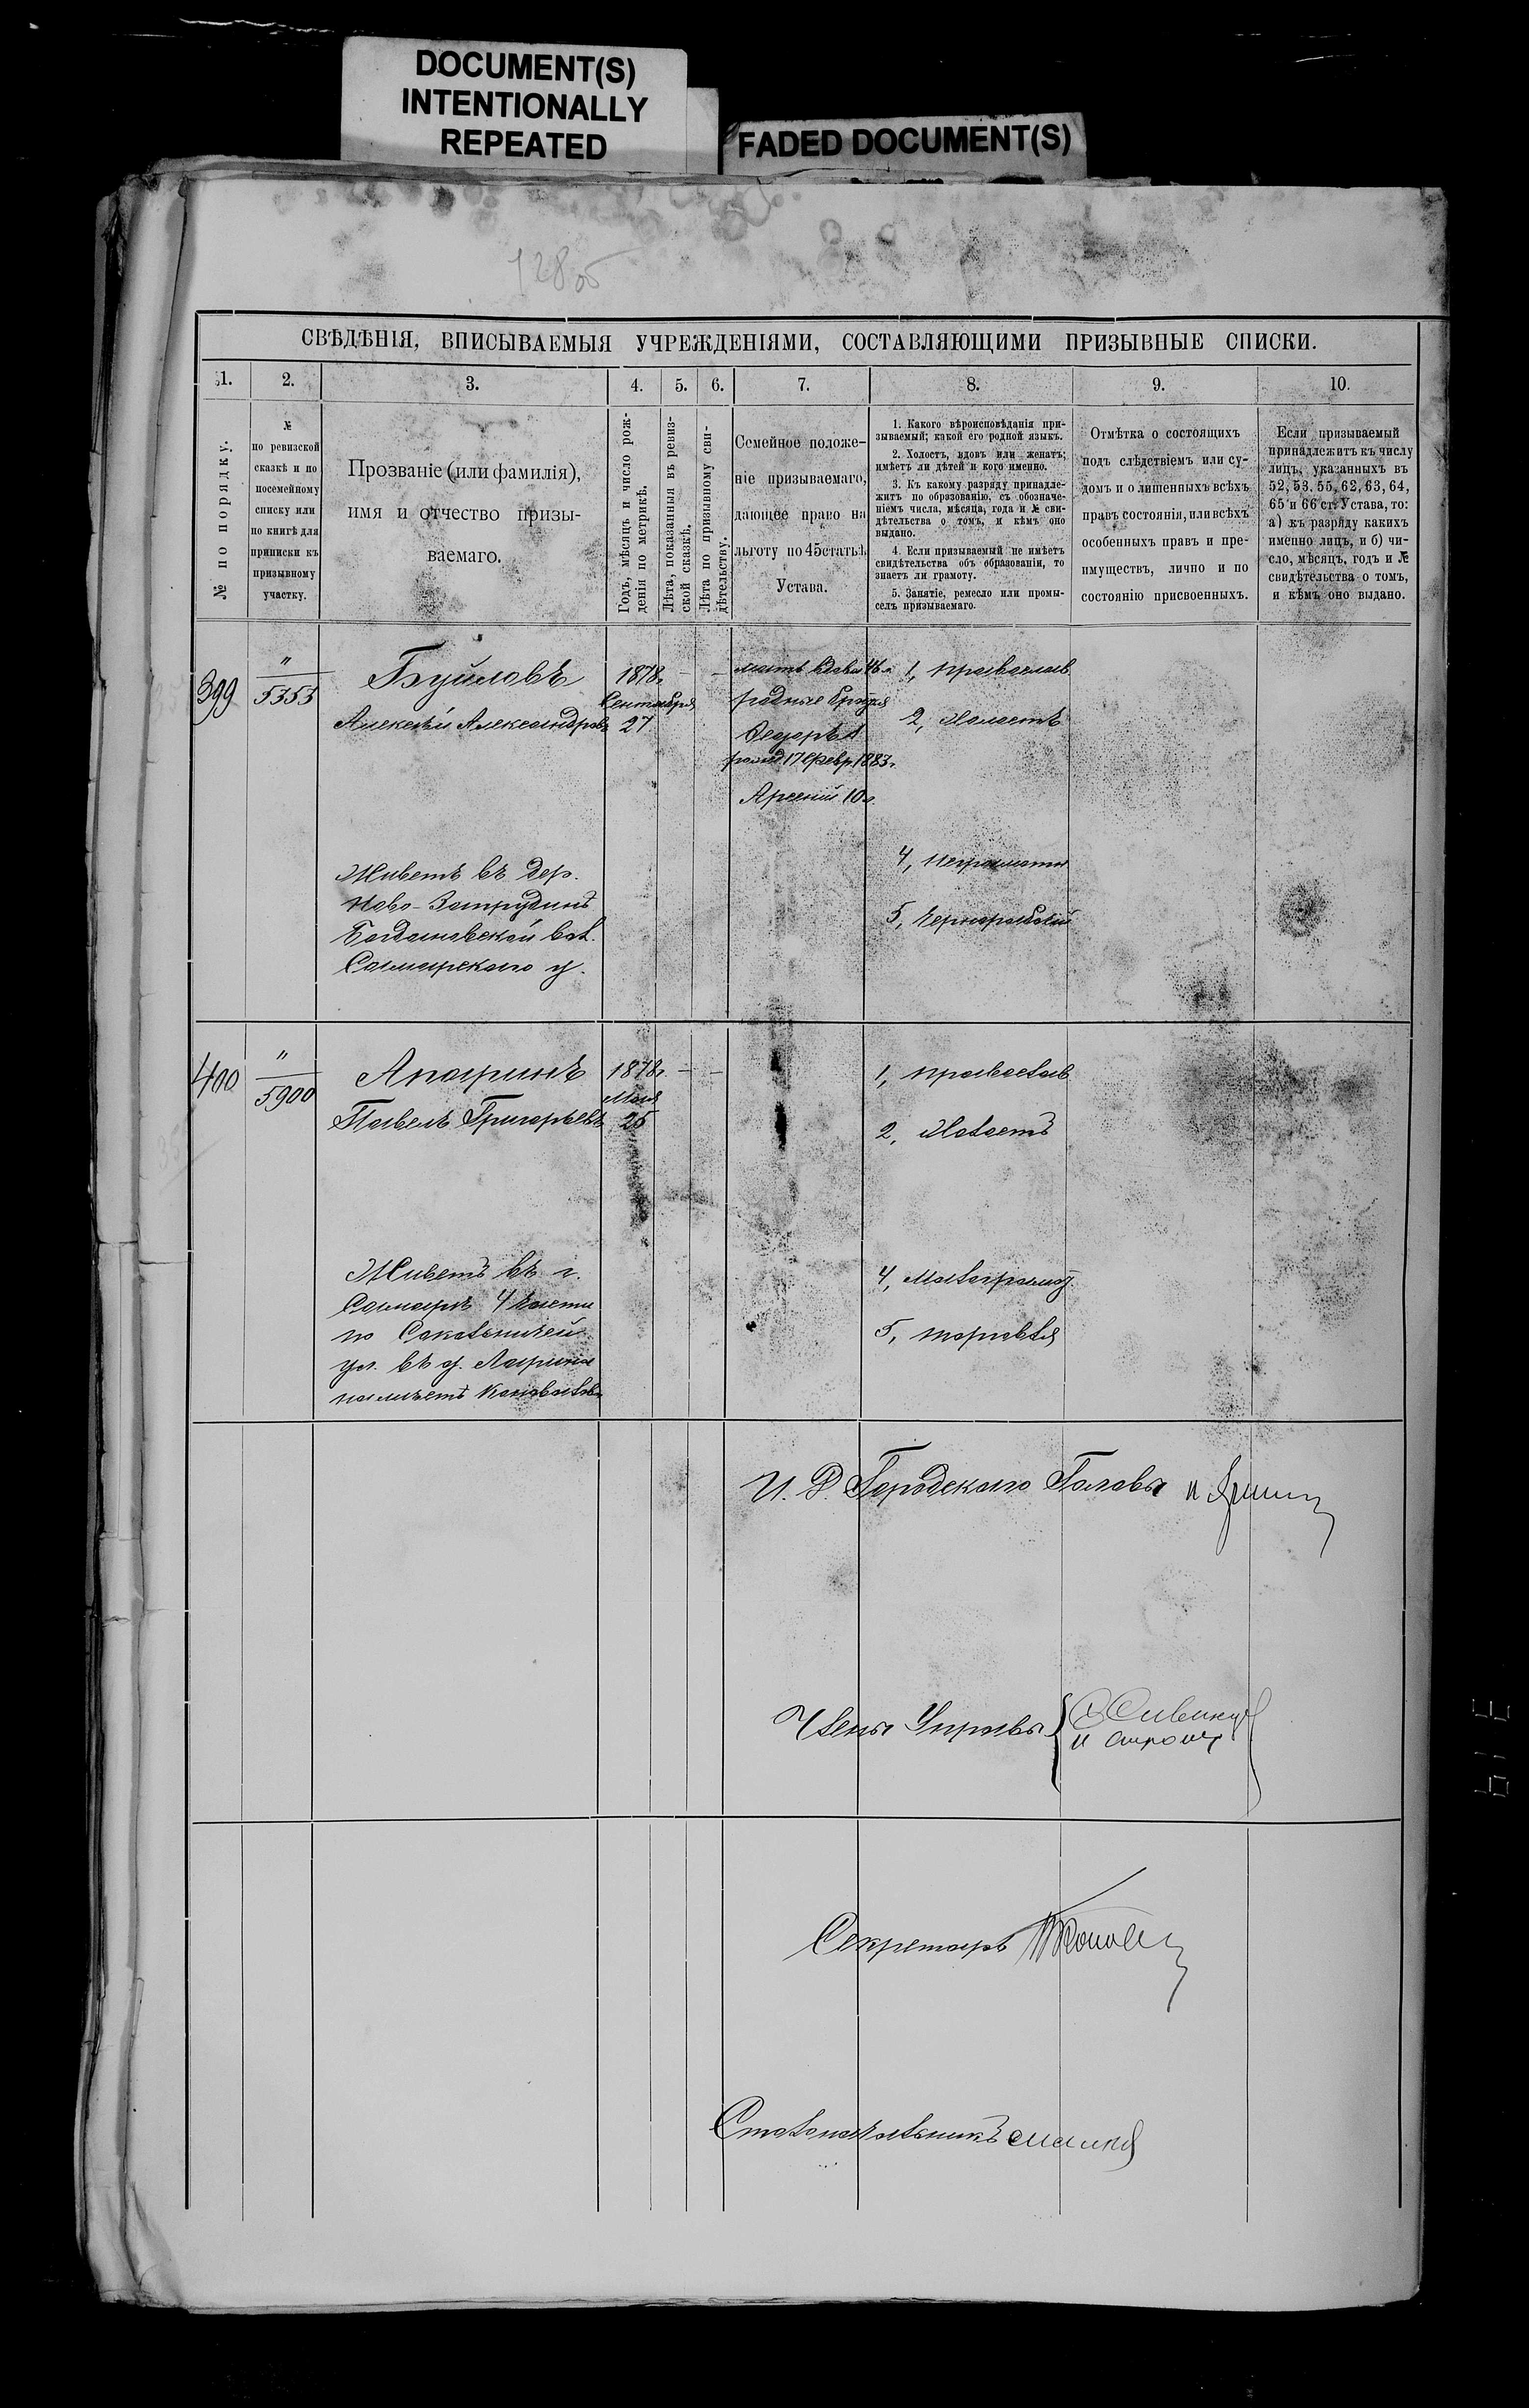 DOCUMENT(S)
INTENTIONALLY
REPEATED
FADED DOCUMENT(S)
СВѢДѢНІЯ, ВПИСЫВАЕМЫЯ УЧРЕЖДЕНІЯМИ, СОСТАВЛЯЮЩИМИ ПРИЗЫВНЫЕ СПИСКИ.
1.
2.
3.
4.
5.
6.
7.
8.
9.
10.
№ по порядку.
№
по ревизской
сказкѣ и по
посемейному
списку или
по книгѣ для
приписки къ
призывному
участку.
Прозваніе (или фамилія),
имя и отчество призы-
ваемаго.
Годъ, мѣсяцъ и число рож-
денія по метрикѣ.
Лѣта, показанныя въ ревиз-
ской сказкѣ.
Лѣта по призывному сви-
дѣтельству.
Семейное положе-
ніе призываемаго,
дающее право на
льготу по 45 статьѣ
Устава.
1. Какого вѣроисповѣданія при-
зываемый; какой его родной языкъ.
2. Холостъ, вдовъ или женатъ;
имѣетъ ли дѣтей и кого именно.
3. Къ какому разряду принадле-
житъ по образованію, съ обозначе-
ніемъ числа, мѣсяца, года и № сви-
дѣтельства о томъ, и кѣмъ оно
выдано.
4. Если призываемый не имѣетъ
свидѣтельства объ образованіи, то
знаетъ ли грамоту.
5. Занятіе, ремесло или промы-
селъ призываемаго.
Отмѣтка о состоящихъ
подъ слѣдствіемъ или су-
домъ и о лишенныхъ всѣхъ
правъ состоянія, или всѣхъ
особенныхъ правъ и пре-
имуществъ, лично и по
состоянію присвоенныхъ.
Если призываемый
принадлежитъ къ числу
лицъ, указанныхъ въ
52, 53, 55, 62, 63, 64,
65 и 66 ст. Устава, то:
а) къ разряду какихъ
именно лицъ, и б) чи-
сло, мѣсяцъ, годъ и №
свидѣтельства о томъ,
и кѣмъ оно выдано.
399
"
5353
Буйловъ
Алексѣй Александровъ
Живетъ въ дер.
Ново-Запрудинъ
Богдановской вол.
Самарскаго у.
1878г.
Сентября
27
—
—
мать вдова 46 л
родные братья
Федоръ
рожд 17 Февр. 1883г.
Арсеній 10 л.
1, православ
2, Холостъ
4, Неграмотн
5, Чернорабочій
400
"
5900
Апаринъ
Павелъ Григорьевъ
Живетъ въ г.
Самарѣ 4 части
по Сокольничей
ул. въ д. Ларина
1878г.
Мая
25
—
—
1, православ
2, Холостъ
4, Малограмот
5, торговля
И. Д. Городского Головы
Члены Управы
Секретарь
Столоначальникъ